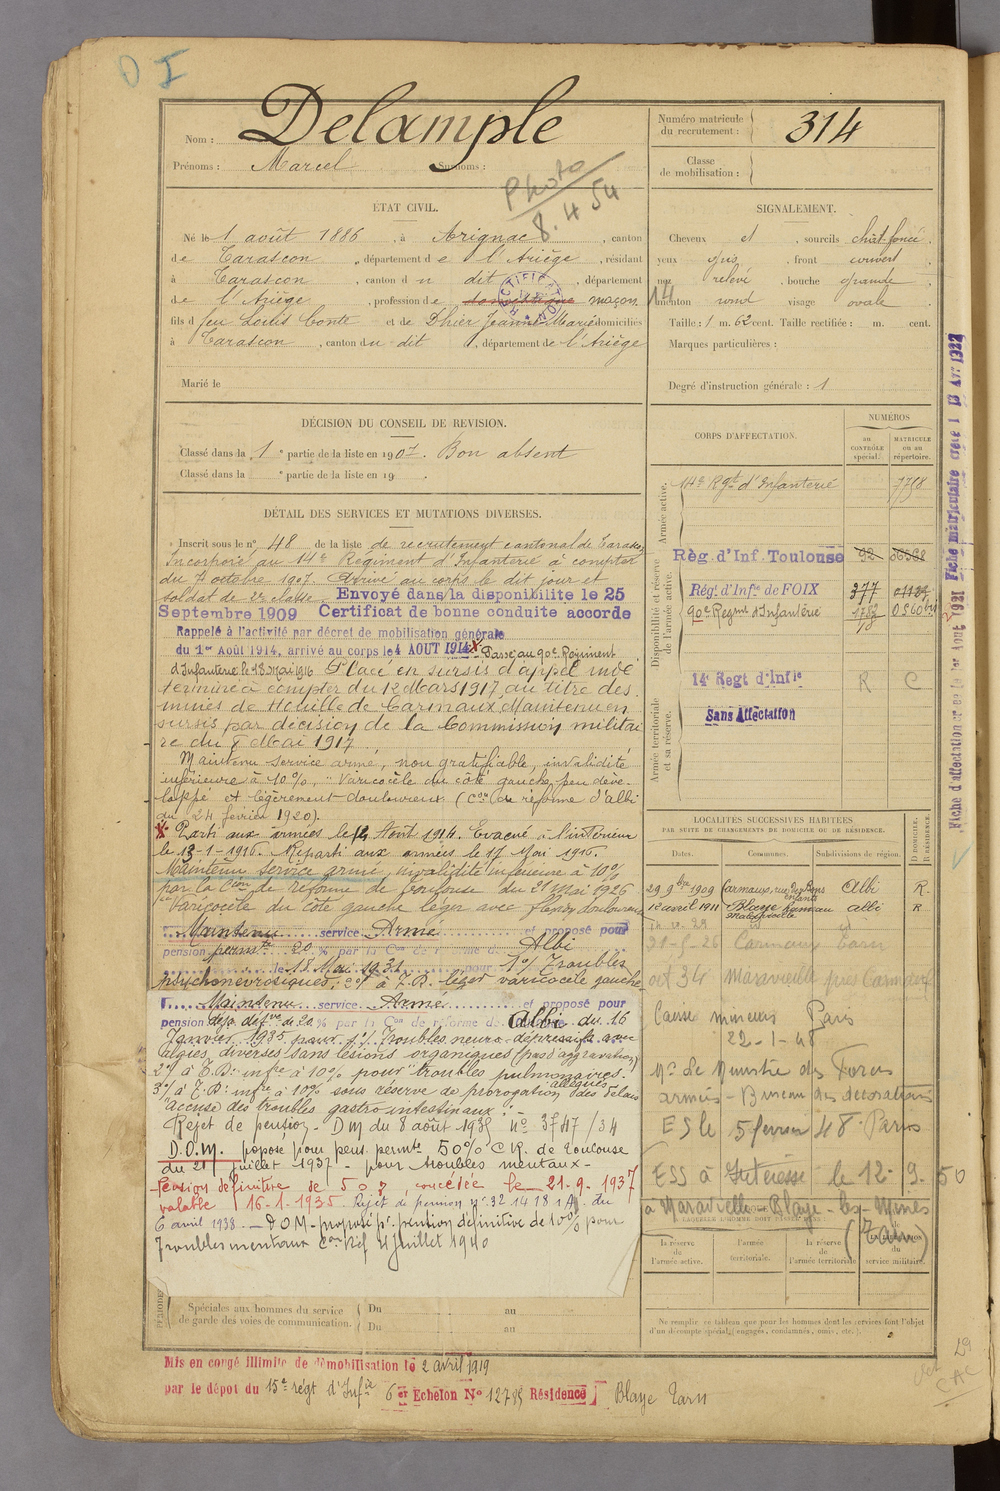 O I
Nom : Delample
Prénoms : Marcel Surnoms :
Photo
8.4 54
Numéro matricule
du recrutement : 314
Classe
de mobilisation :
ÉTAT CIVIL.
Né le 1 août 1886, à Arignac, canton
de Tarascon, département de l'Ariège, résidant
à Tarascon, canton du dit, département
de l'Ariège, profession de domestique maçon
fils d feu Louis Conte et de Dhier Jeanne Marie domiciliés
à Tarascon, canton du dit, département de l'Ariège
RECTIFICATION
Marié le
SIGNALEMENT.
Cheveux et, sourcils chât-foncé.
yeux gris, front couvert
nez relevé, bouche grande
menton rond visage ovale
14
Taille : 1 m. 62 cent. Taille rectifiée : m. cent.
Marques particulières :
Degré d'instruction générale : 1
DÉCISION DU CONSEIL DE REVISION.
Classé dans la 1e partie de la liste en 1907. Bon absent
Classé dans la e partie de la liste en 19 .
DÉTAIL DES SERVICES ET MUTATIONS DIVERSES.
Inscrit sous le n° 48 de la liste de recrutement cantonal de Tarascon
Incorporé au 14e Régiment d'Infanterie à compter
du 7 octobre 1907. Arrivé au corps le dit jour et
soldat de 2e classe. Envoyé dans la disponibilité le 25
Septembre 1909 Certificat de bonne conduite accordé
Rappelé à l'activité par décret de mobilisation générale
du 1er Août 1914, arrivé au corps le 4 AOUT 1914 X Passé au 90e Régiment
d'Infanterie le 18 Mai 1916 Placé en sursis d'appel indé
terminé à compter du 12 Mars 1917, au titre des
mines de Houille de Carmaux. Maintenu en
sursis par décision de la Commission militai
re du 8 Mai 1917
Maintenu service armé, non gratifiable, invalidité
inférieure à 10%, "Varicocèle du côté gauche, peu déve-
loppé et légèrement douloureux (Con de réforme d'albi
du 24 février 1920).
X Parti aux armées le 12 Août 1914. Evacué à l'intérieur
le 13-1-1916. Reparti aux armées le 17 Mai 1916.
Maintenu service armé, invalidité inférieure à 10%
par la Con de réforme de Toulouse du 21 mai 1926
Varicocèle du côte gauche léger avec douloureux
Maintenu service Armé et proposé pour
pension permte 20 % par la Con de réforme de Albi
le 18 Mai 1931 pour 1°/ Troubles
psychonévrosiques; 2°/ à T.R. léger varicocèle gauche
Maintenu service Armé et proposé pour
pension déjà défve de 20 % par la Con de réforme de Albi du 16
Janvier 1935 pour 1°/ Troubles neuro-dépressifs avec
algies, diverses sans lésions organiques (pas d'aggravation)
2°/ à T.D: infre à 10% pour troubles pulmonaires.
3°/ à T.D: infre à 10% sous réserve de prorogation des délais allégués
"accuse des troubles gastro intestinaux".
Rejet de pension - DM du 8 août 1935 n° 3747/34
D.O.M. proposé pour pens. permte 50% C.R. de Toulouse
du 21 juillet 1937 - pour troubles mentaux -
Pension définitive de 50%, concédée le 21-9-1937
valable 16-1-1935. Rejet de pension n° 321418 1A du
6 avril 1938. - D.O.M - proposé pr. pension définitive de 10% pour
Troubles mentaux Con Réf 4 Juillet 1940
CORPS D'AFFECTATION.
NUMÉROS
au CONTRÔLE spécial.
MATRICULE ou au répertoire.
Armée active.
14e Rgt d'Infanterie 7758
Disponibilité et réserve de l'armée active.
Règ. d'Inf. Toulouse 92 36568
Régt. d'Infie de FOIX 377 01122
90e Regmt d'Infanterie 1782 0560 bis
14e Regt d'Infie R C
Sans Affectation
Armée territoriale et sa réserve.
LOCALITÉS SUCCESSIVES HABITÉES
PAR SUITE DE CHANGEMENTS DE DOMICILE OU DE RÉSIDENCE.
Dates. Communes. Subdivisions de région. D DOMICILE. R RÉSIDENCE.
29 9bre 1909 Carmaux, rue des Bons enfants Albi R.
12 avril 1911 Blaye hameau albi R
21-5-26 Carmaux Tarn
oct 34 Maravieille près Carmaux
Caisse mineurs Paris
22-1-48
Mre de Ministre des Forces
armées - Bureau des décorations
ES le 5 fevrier 48. Paris
ESS à Intéressé le 12-9-50
à Maravielle Blaye-les-Mines
(Tarn)
la réserve de l'armée active. l'armée territoriale. la réserve de l'armée territoriale service militaire.
Ne remplir ce tableau que pour les hommes dont les services font l'objet
d'un décompte spécial (engagés, condamnés, omis, etc.).
PÉRIODES
Spéciales aux hommes du service
de garde des voies de communication.
Du au
Du au
Mis en congé illimité de démobilisation le 2 avril 1919
par le dépot du 15e régt d'Infie 6er Echelon N° 12785 Résidence Blaye Tarn
29
CAC
Fiche d'affectation créée le 1er Août 1921 Fiche matriculaire créée l 13 Avr 1322